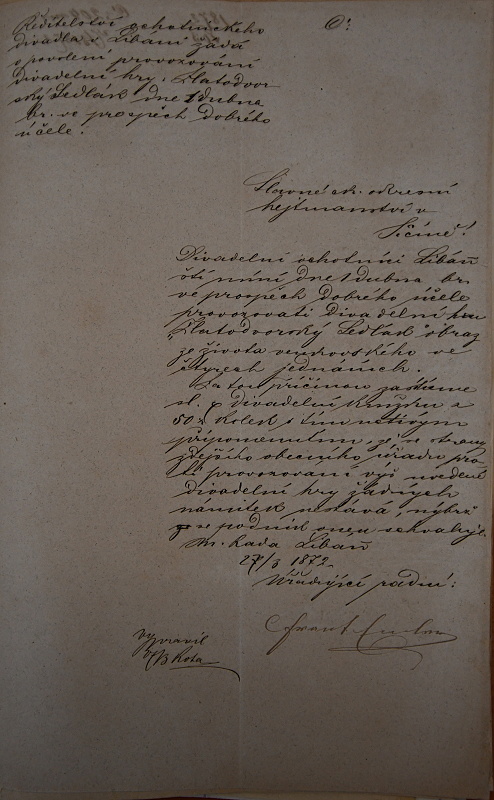 Ředitelství ochotnického
divadla v Libáni žádá
o povolení provozování
divadelní hry: Zlatodvor-
ský Sedlák dne 1 dubna
br. ve prospěch dobrého
účele.
Slavné okresní
hejtmanství v
Jičíně!
Divadelní ochotníci Libáň
míní dne 1 dubna br.
ve prospěch dobrého účele
provozovati Divadelní hru
„Zlatodvorský Sedlák" obraz
ze života venkovského ve
čtyrech jednáních.
Za tou příčinou zasíláme
sl. divadelní knížku s
50 x kolek s tím
připomenutím, že se strany
zdejšího obecního úřadu pro-
ti provozování výš uvedené
divadelní hry žádných
námitek nestává, nýbrž
se podnik onen schvaluje.
M. Rada Libáň
27/3 1872.
Úřadující radní:
Frant.
vypravil
Kota